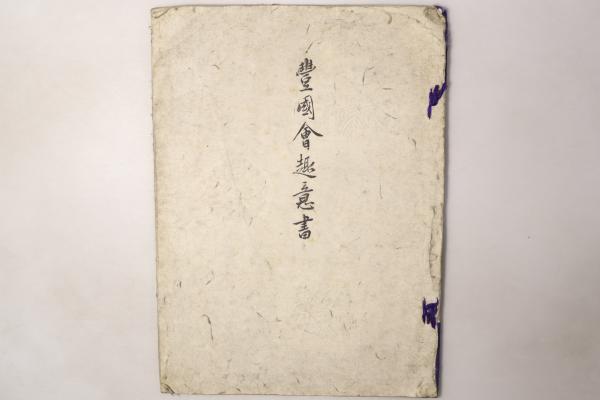 豐國會趣意書